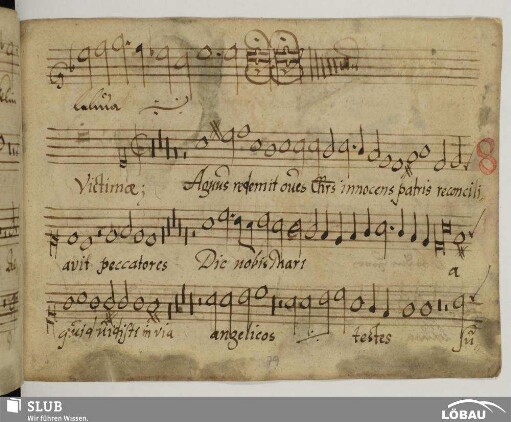 Victimæ; Agnus redemit oves Chrs innocens patris reconcili
avit peccatores Die nobis Mari a
in via angelicos testes
8
SLUB
Wir führen Wissen.
LÖBAU